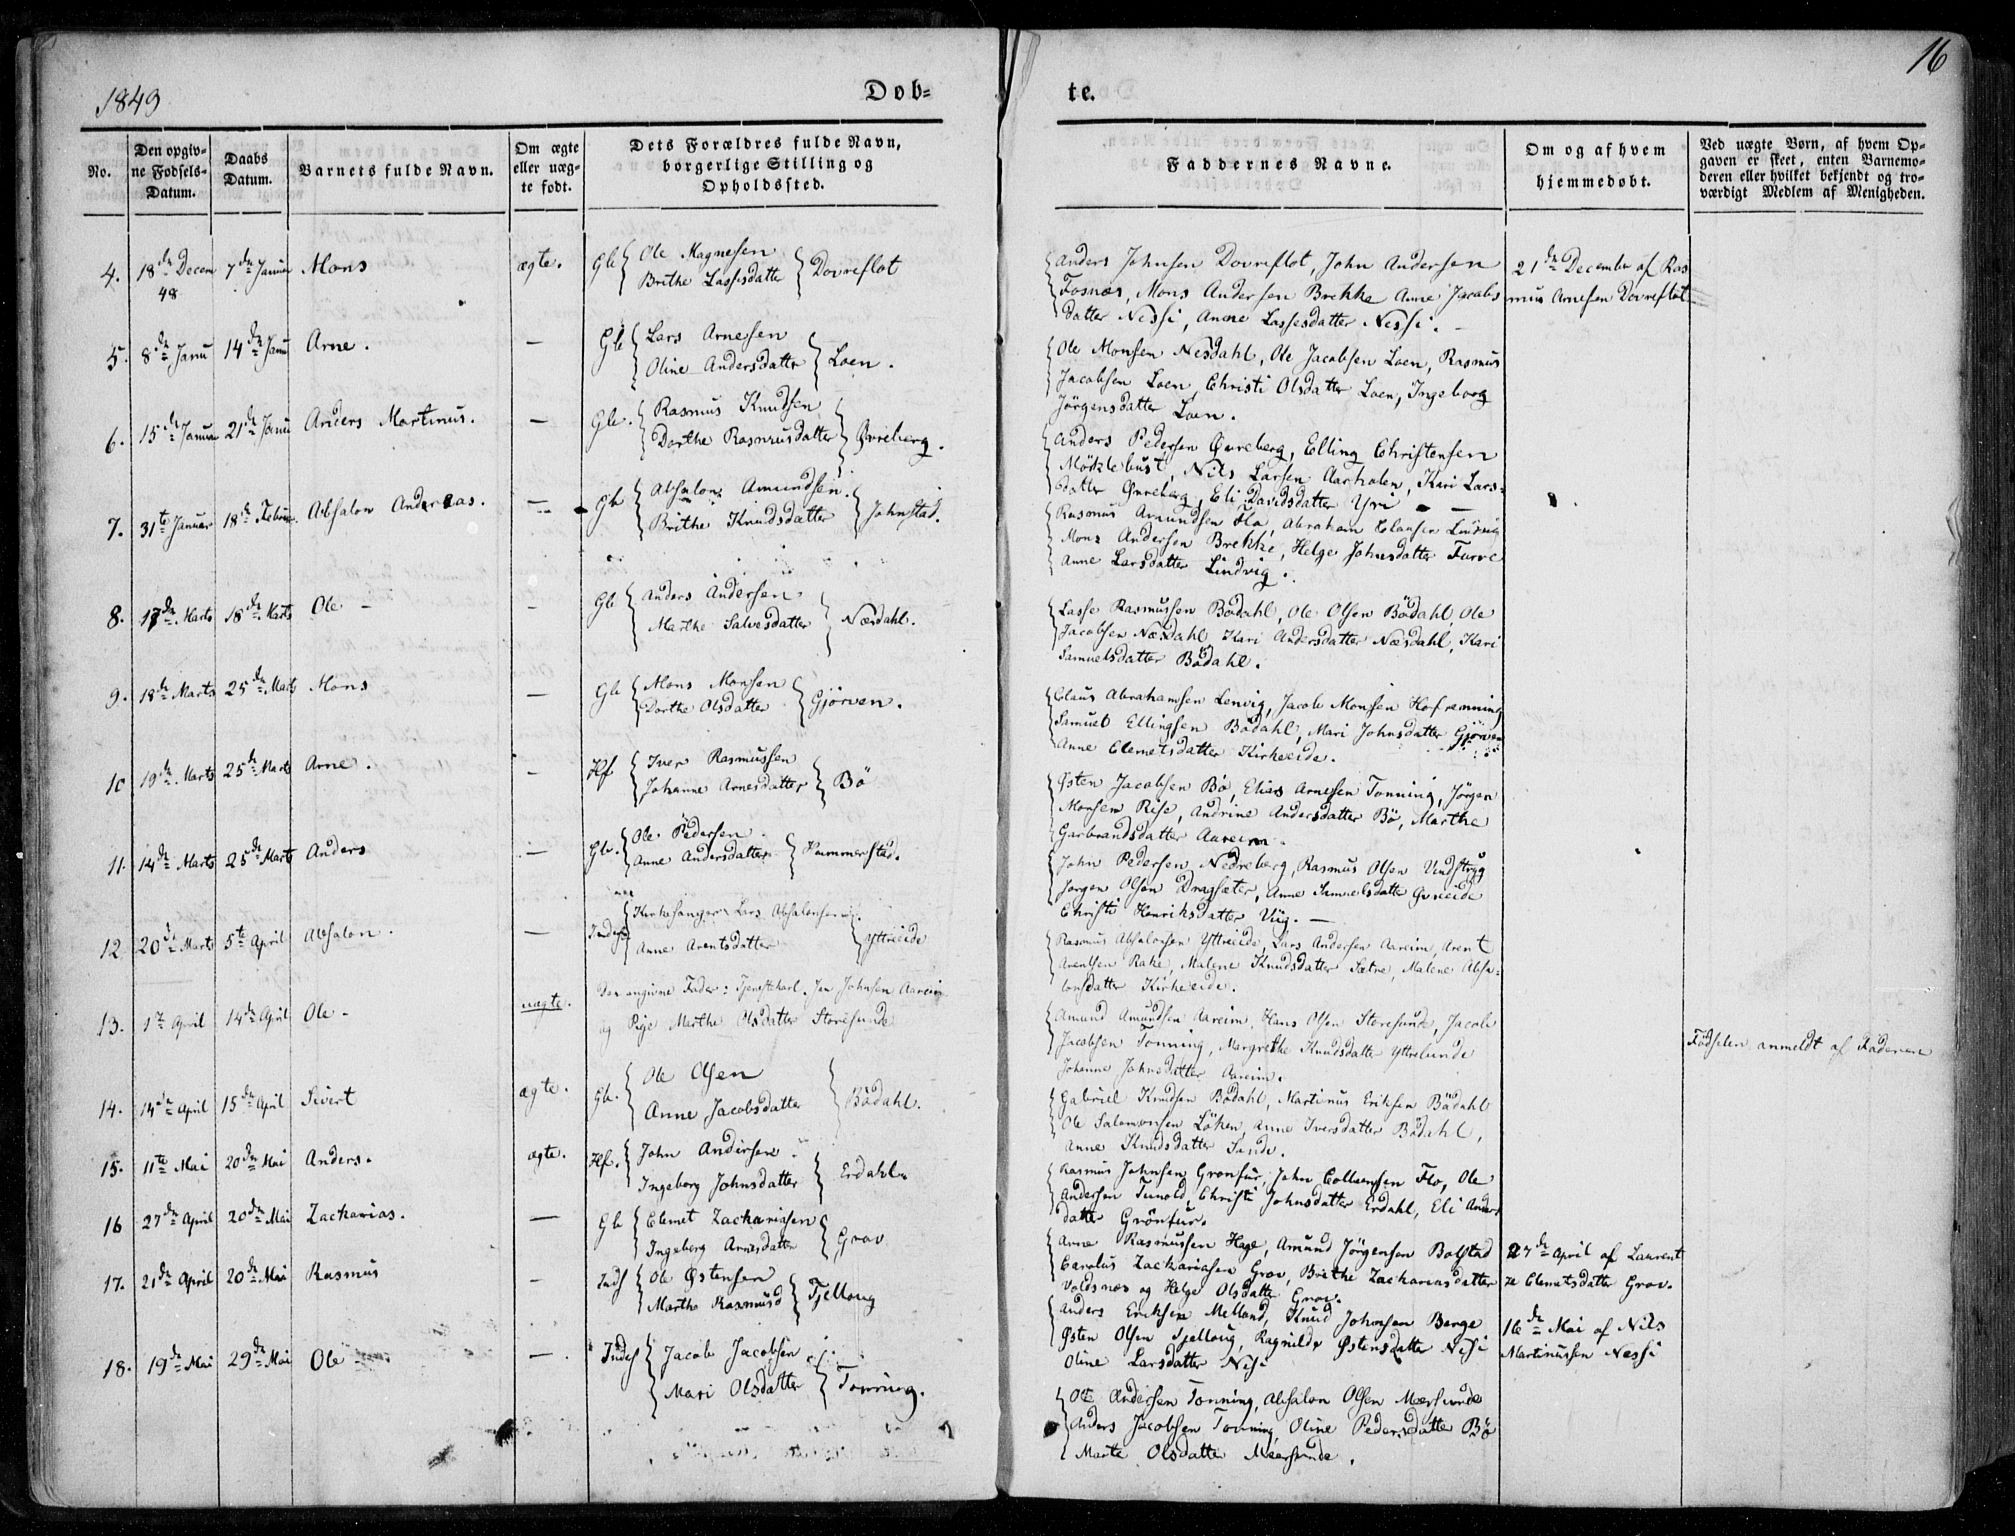 1849
Dob-
te.
16
No.
Den opgiv-
ne Fødsels-
Datum.
Daabs
Datum.
Barnets fulde Navn.
Om ægte
eller uæg-
te født.
Dets Forældres fulde Navn,
borgerlige Stilling og
Opholdssted.
Faddernes Navne.
Om og af hvem
hjemmedøbt.
Ved uægte Børn, af hvem Op-
gaven er skeet, enten Barnemo-
deren eller hvilket bekjendt og tro-
værdigt Medlem af Menigheden.
4. 18de Decem 48 7de Januar Mons ægte. Gb Ole Magnesen
Brithe Lassesdatter Dovreflot
Anders Johnsen Dovreflot, John Andersen
Fosnæs, Mons Andersen Brekke Anne Jacobs
datter Nessi, Anne Lassesdatter Nessi.
21de December af Ras
mus Arnesen Dovreflot
5. 8de Janu 14de Janu Arne. — Gb Lars Arnesen
Oline Andersdatter Loen.
Ole Monsen Nesdahl, Ole Jacobsen Loen, Rasmus
Jacobsen Loen, Christi Olsdatter Loen, Ingeborg
Jörgensdatter Loen.
6. 15de Januar 21de Janu Anders Martinus. — Gb. Rasmus Knudsen
Dorthe Rasmusdatter Øvreberg.
Anders Pedersen Øvreberg, Elling Christensen
Möklebust, Nils Larsen Aarholen, Kari Lars-
datter Øvreberg, Eli Davidsdatter Yri —
7. 31te Januar 18de Februar Absalon Andreas. — Gb Absalon Amundsen.
Brithe Knudsdatter Johnstad.
Rasmus Amundsen Flo, Abraham Clausen Lindvig
Mons Andersen Brekke, Helge Johnsdatter Furve
Anne Larsdatter Lindvig.
8. 17de Marts 18de Marts Ole — — Gb Anders Andersen
Marthe Salvesdatter Næsdahl.
Lasse Rasmussen Bödahl, Ole Olsen Bödahl, Ole
Jacobsen Næsdahl Kari Andersdatter Næsdahl, Kari
Samuelsdatter Bödahl.
9. 18de Marts 25de Marts Mons — Gb Mons Monsen
Dorthe Olsdatter Gjörven.
Claus Abrahamsen Lenvig, Jacob Monsen Hofremning
Samuel Ellingsen Bödahl, Mari Johnsdatter Gjörven
Anne Clemetsdatter Kirkeeide.
10 19de Marts 25de Marts Arne. — Hf Iver Rasmussen
Johanne Arnesdatter Bö
Østen Jacobsen Bö, Elias Arnesen Tonning, Jörgen
Monsen Rise, Andrine Andersdatter Bö, Marthe
Garbrandsdatter Aareim.
11. 14de Marts 25de Marts Anders — Gb. Ole Pedersen
Anne Andersdatter Hammerstad.
John Pedersen Nedreberg, Rasmus Olsen Undstryg
Jorgen Olsen Dragsæter, Anne Samuelsdatter
Christi Henriksdatter Viig. —
12 20de Marts 5te April Absalon. — Inders Kirkesanger Lars Absalonsen
Anne Arentsdatter Yttreeide
Rasmus Absalonsen Yttreeide, Lars Andersen Aareim, Arent
Arentsen Rake, Malene Knudsdatter Sætre, Malene Absa-
lonsdatter Kirkeeide.
13. 1te April 14de April Ole — uægte. Den angivne Fader: Tjenestekarl Jon Johnsen Aareim
og Pige Marthe Olsdatter Storesunde
Amund Amundsen Aareim, Hans Olsen Storesunde, Jacob
Jacobsen Tonning, Margrethe Knudsdatter Yttrelunde
Johanne Johnsdatter Aareim.
Födselen anmeldt af Faderen
14. 14de April 15de April Sivert ægte. Gb. Ole Olsen
Anne Jacobsdatter Bödahl.
Gabriel Knudsen Bödahl, Martinus Eriksen Bödahl
Ole Salomonsen Löken, Anne Iversdatter Bödahl,
Anne Knudsdatter Sunde.
15. 11te Mai 20de Mai Anders. ægte. Hf. John Andersen
Ingeborg Johnsdatter Erdahl.
Rasmus Johnsen Gronfur, John Flo, Ole
Andersen Tunold, Christi Johnsdatter Erdahl, Eli Anders
datter Grönfur.
16 27de April 20de Mai Zacharias. — Gb Clemet Zachariasen
Ingeborg Arnesdatter Grov
Arne Rasmussen Hage, Amund Jörgensen Bolstad
Carolus Zachariasen Grov, Brithe Zachariasdatter
Voldsnæs og Helge Olsdatter Grov.
27de April af Laurent
ze Clemetsdatter Grov.
17. 21de April 20de Mai Rasmus — Inds Ole Østensen
Marthe Rasmusd Tjelloug
Anders Eriksen Melland, Knud Johnsen Berge
Østen Olsen Tjelloug, Ragnilde Østensdatter Nesi
Oline Larsdatter Nesi
16de Mai af Nils
Martinussen Nessi
18. 19de Mai 29de Mai Ole — Inders Jacob Jacobsen
Mari Olsdatter Tonning.
Ole Andersen Tonning, Absalon Olsen Meersunde
Anders Jacobsen Tonning, Oline Pedersdatter Bö
Marte Olsdatter Meersunde.